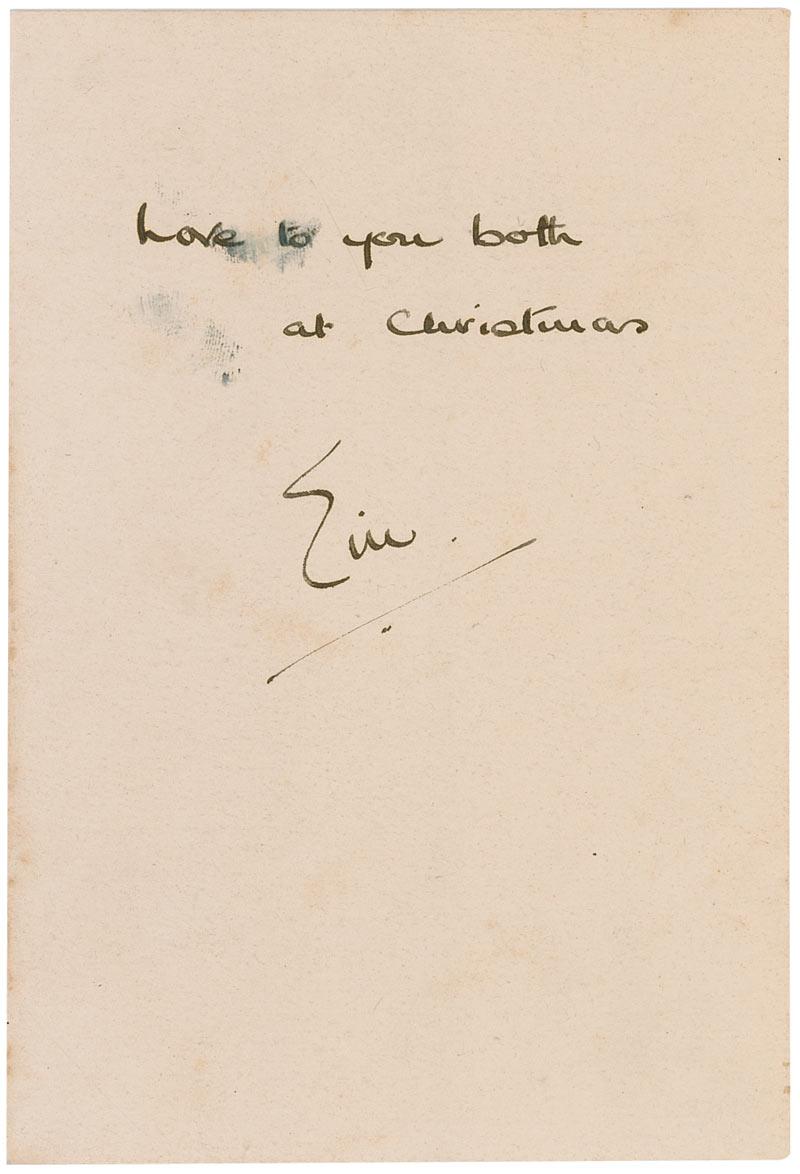 Love to you both
at Christmas